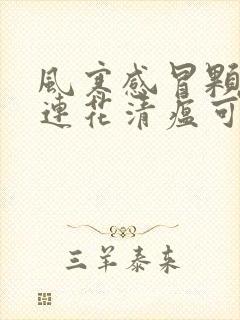 風寒感冒顆
連花清瘟可
三羊泰来